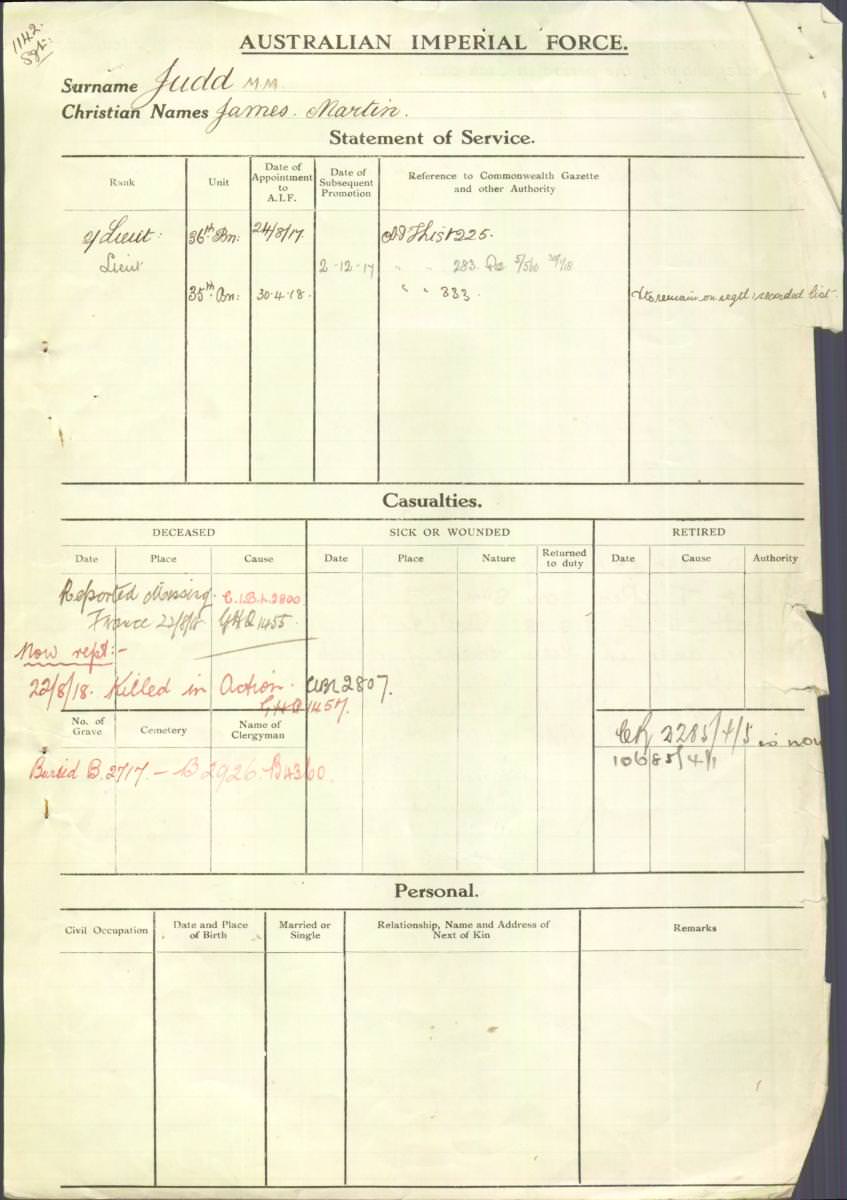 1142.
Sgt.
AUSTRALIAN IMPERIAL FORCE.
Surname Judd M.M.
Christian Names James. Martin.
Statement of Service.
Rank
Unit
Date of Appointment to A.I.F.
Date of Subsequent Promotion
Reference to Commonwealth Gazette and other Authority
2/Lieut: 36th Bn: 24/8/17. list 225.
Lieut 2-12-17 " " 283. 5/560
35th Bn: 30.4.18. " " 333. to remain on regtl: seconded list.
Casualties.
DECEASED
SICK OR WOUNDED
RETIRED
Date Place Cause Date Place Nature Returned to duty Date Cause Authority
Reported Missing. C.I.B.L. 2800
France 22/8/18 GHQ 1455.
Now rept:-
22/8/18. Killed in Action. CBL 2807.
GHQ 1457.
No. of Grave Cemetery Name of Clergyman
2285/4/5 is now
10685/4/1
Buried B. 2717. - B 2926 - B4360.
Personal.
Civil Occupation
Date and Place of Birth
Married or Single
Relationship, Name and Address of Next of Kin
Remarks